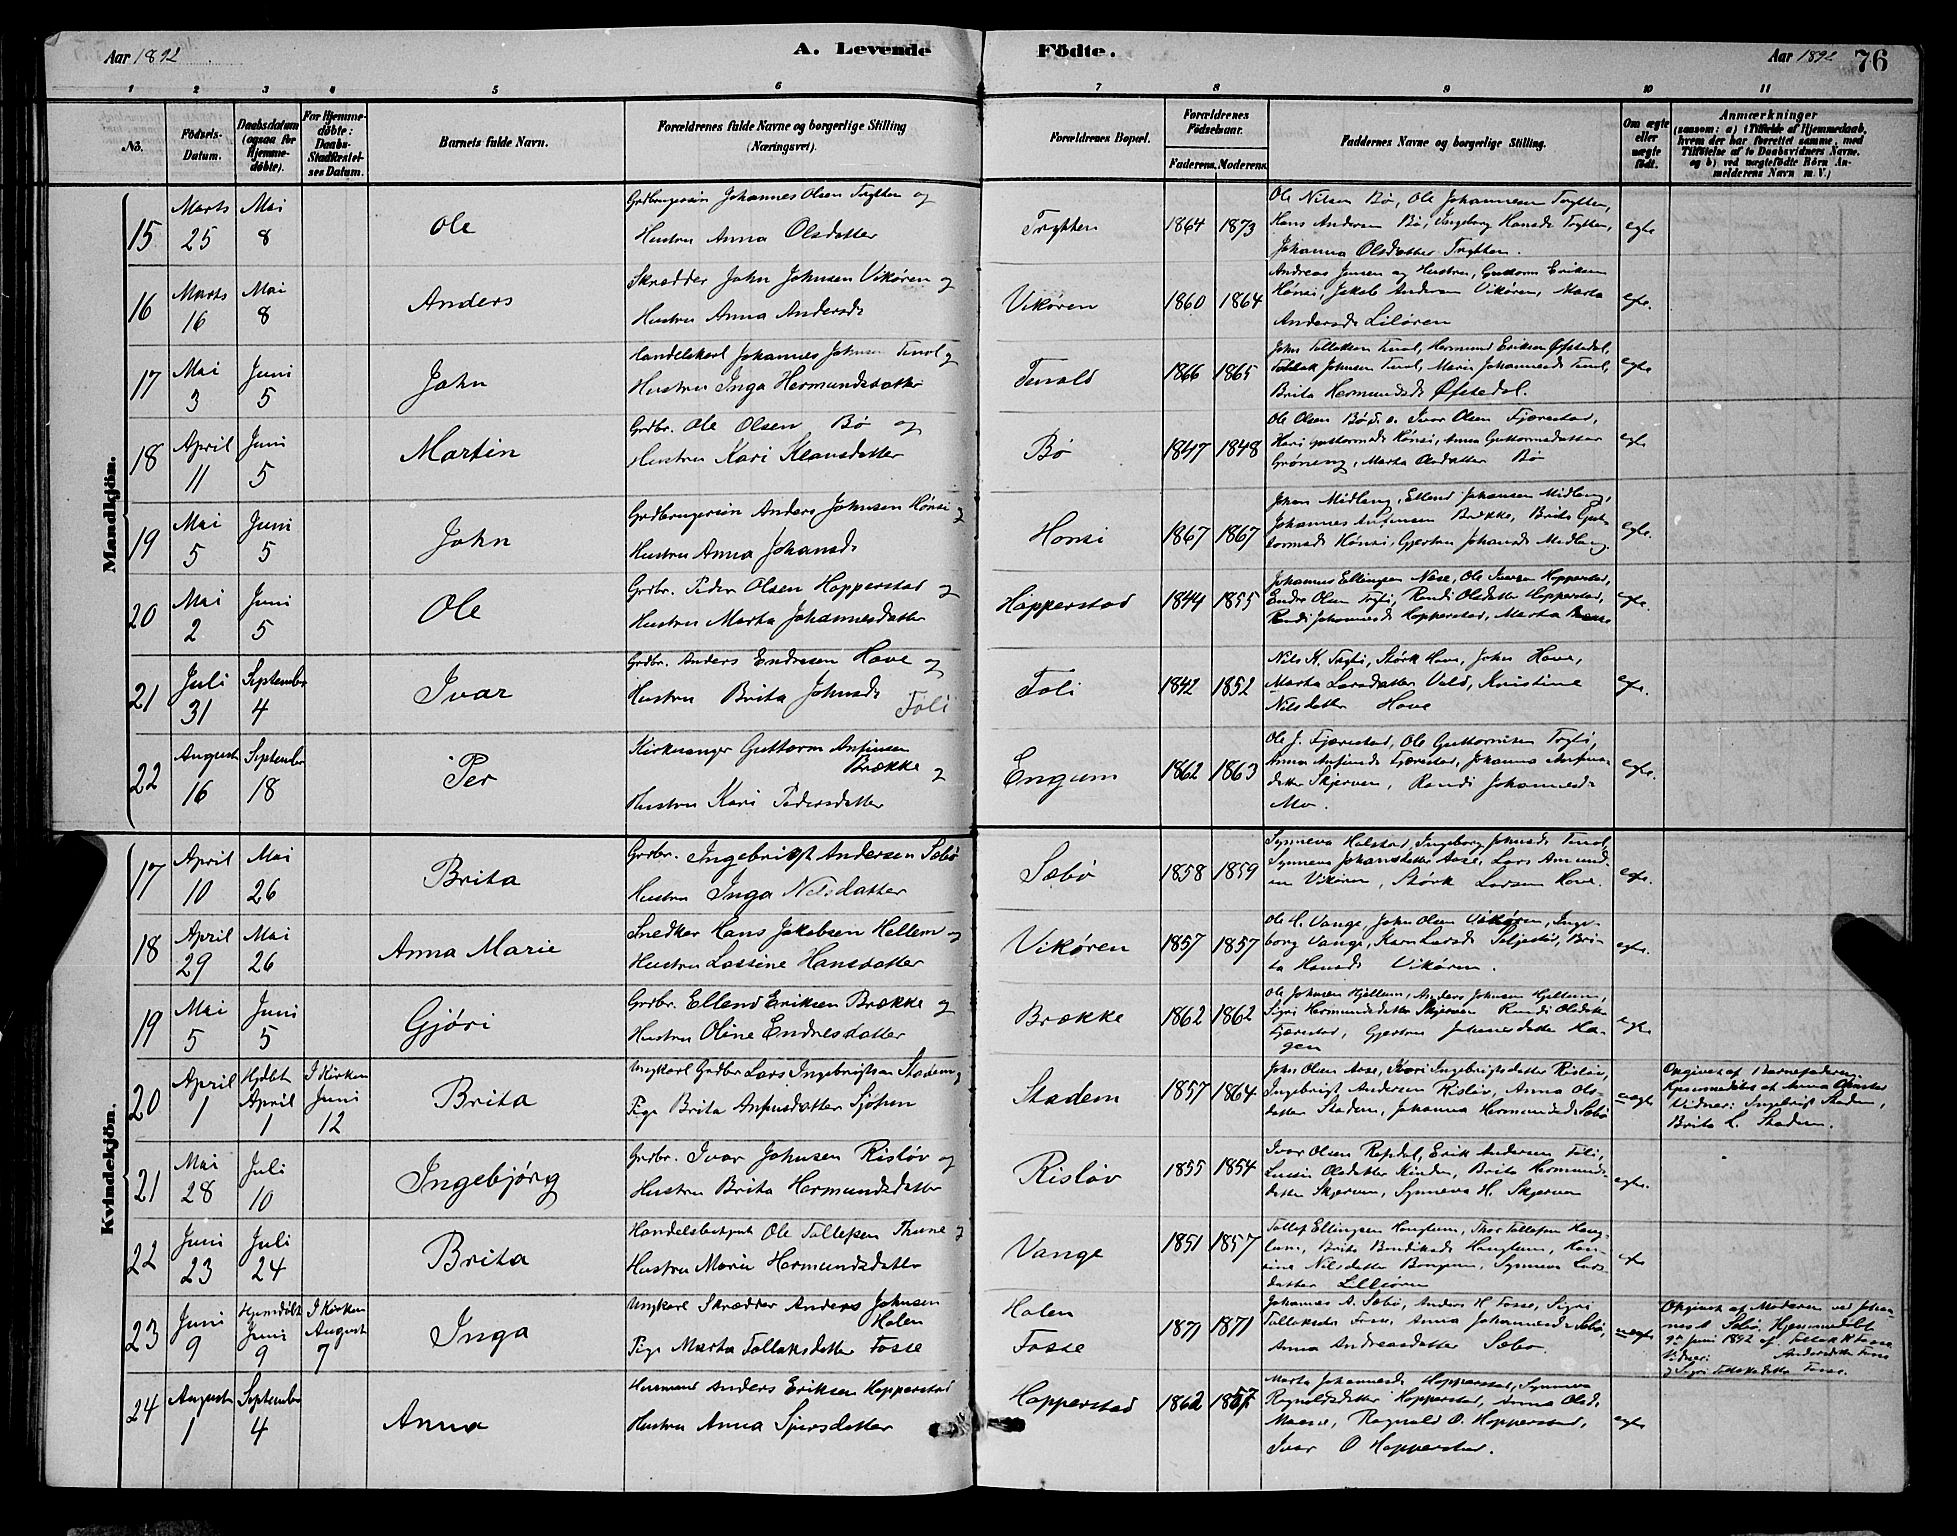 Aar 1892
A. Levende
Födte.
Aar 1892
76
1 2 3 4 5 6 7 8 9 10 11
No.
Födsels-Datum.
Daabsdatum (ogsaa for Hjemme-döbte).
For Hjemme-döbte: Daabs-Stadfæstel-ses Datum.
Barnets fulde Navn.
Forældrenes fulde Navne og borgerlige Stilling (Næringsvei).
Forældrenes Bopæl.
Forældrenes Födselsaar.
Faderens. Moderens.
Faddernes Navne og borgerlige Stilling.
Om ægte eller uægte födt.
Anmærkninger
(saasom: a) i Tilfælde af Hjemmedaab, hvem der har forrettet samme, med Tilföielse af to Daabsvidners Navne, og b) ved uægtefödte Börn An-melderens Navn m. V.)
Mandkjön.
15 Marts 25 Mai 8 Ole
Johannes Olsen Trytten og
Hustru Anna Olsdatter
Trytten 1864 1873
Ole Nilsen Bø, Ole Johannesen Trytten,
Hans Andersen Bø, Ingeborg Hansd. Trytten,
Johanna Olsdatter Trytten.
egte
16 Marts 16 Mai 8 Anders
Skrædder John Johnsen Vikøren og
Hustru Anna Andersd.
Vikøren 1860 1864
Andreas Jensen og Hustru, Guttorm Eriksen
Hønsi, Jakob Andersen Vikøren, Marta
Andersd. Liløren
egte.
17 Mai 3 Juni 5 John
Handelskarl Johannes Johnsen og
Hustru Inga Hermundsdatter
Tenold 1866 1865
Hermund Eriksen Øfstedal,
Brita Hermundsd. Øfstedal.
egte
18 April 11 Juni 5 Martin
Grdbr. Ole Olsen Bø og
Hustru Kari Klausdatter
Bø 1847 1848
Ole Olsen Bø, Ivar Olsen Fjærestad,
Kari Guttormsd. Hønsi, Anna Guttormsdatter
Grøneng, Marta Olsdatter Bø
egte
19 Mai 5 Juni 5 John
Anders Johnsen Hønsi og
Hustru Anna Johansd.
Hønsi 1867 1867
Johan Midlang, Ellend Johansen Midlang,
Johannes Anfinsen Brække, Brita Gut-
tormsd. Hønsi, Gjertru Johansd. Midlang.
egte.
20 Mai 2 Juni 5 Ole
Grdbr. Peder Olsen Hopperstad og
Hustru Marta Johannesdatter
Hopperstad 1844 1855
Johannes Ellingsen Nese, Ole Iversen Hopperstad,
Endre Olsen Randi Olsdatter Hopperstad,
Randi Johannesd. Hopperstad, Marta
egte.
21 Juli 31 September 4 Ivar
Grdbr. Anders Endresen Hove og
Hustru Brita Johnsd. Foli
Foli 1842 1852
Størk Hove, John Hove,
Marta Larsdatter Kristine
Nilsdatter Hove
egte.
22 August 16 September 18 Per
Kirkesanger Guttorm Anfinsen
Brække og
Hustru Kari Pedersdatter
Engum 1862 1863
Ole J. Fjærestad, Ole Guttormsen
Anna Anfinsd. Fjærestad, Johanna Anfins-
datter Skjerven, Randi Johannesd.
Mo.
egte.
Kvindekjön.
17 April 10 Mai 26 Brita
Grdbr. Ingebrigt Andersen Sæbø
Hustru Inga Nilsdatter
Sæbø 1858 1859
Synneva Ingeborg Johnsd.
Synneva Johansdatter Aase, Lars Amund-
sen Vikøren, Størk Larsen Hove.
egte.
18 April 29 Mai 26 Anna Marie
Snedker Hans Jakobsen Hellem og
Hustru Lassine Hansdatter
Vikøren 1857 1857
Ole H. Vange, John Olsen Vikøren, Inge-
borg Vange, Bri-
ta Hansd. Vikøren.
egte.
19 Mai 5 Juni 5 Gjøri
Grdbr. Ellend Eriksen Brække og
Hustru Oline Endresdatter
Brække 1862 1862
Ole Johnsen Hjellum, Anders Johnsen Hjellum,
Sigri Hermundsdatter Skjerven Randi Olsdatter
Fjærestad, Gjertru Johannesdatter Ha-
gen
egte
20 April 1 Hjdöbt April 1 I Kirken Juni 12 Brita
Ungkarl Grdbr Lars Ingebrigtsen Stadem og
Pige Brita Anfinsdatter Sjøtun
Stadem 1857 1864
John Olsen Aase, Kari Ingebrigtsdatter Risløv,
Ingebrigt Andersen Risløv, Anna Ols-
datter Stadem, Johanna Hermundsd. Sæbø
uegte
Opgivet af Barnefaderen.
Hjemmedöbt af Anna
Vidner: Ingebrigt Stadem,
Brita L. Stadem.
21 Mai 28 Juli 10 Ingebjørg
Grdbr. Ivar Johnsen Risløv og
Hustru Brita Hermundsdatter
Risløv 1855 1854
Ivar Olsen Erik Andersen Foli,
Olsdatter Brita Hermunds-
datter Skjerven, Synneva H. Skjerven
egte.
22 Juni 23 Juli 24 Brita
Ole Tollefsen Thune og
Hustru Marie Hermundsdatter
Vange 1851 1857
Tollef Ellingsen Hanglum, Thor Tollefsen Hang-
lum, Brita Hanglum,
Nilsdatter Synneva Lars-
datter Lilløren
egte
23 Juni 9 Hjemdöbt Juni 9 I Kirken August 7 Inga
Ungkarl Skrædder Anders Johnsen
Holen
Pige Marta Tollaksdatter Fosse
Holen
Fosse 1871 1871
Johannes A. Sæbø, Anders H. Fosse, Sigri
Tollaksdtr Fosse, Anna Johannesd. Sæbø,
Anna Andreasdatter Sæbø.
uegte
Opgivet af Moderen ved Johan-
nes A Sæbø. Hjemmedöbt
9de Juni 1892 af Tollak H Fosse
Vidner: Andersdatter Fosse
og Sigri Tollaksdatter Fosse.
24 August 1 September 4 Anna
Husmand Anders Eriksen Hopperstad
Hustru Anna Sjursdatter
Hopperstad 1862 1857
Marta Johannesd. Hopperstad, Synneva
Ragnvaldsdatter Hopperstad, Anna Olsd.
Ragnvald O. Hopperstad,
Ivar O Hopperstad.
egte